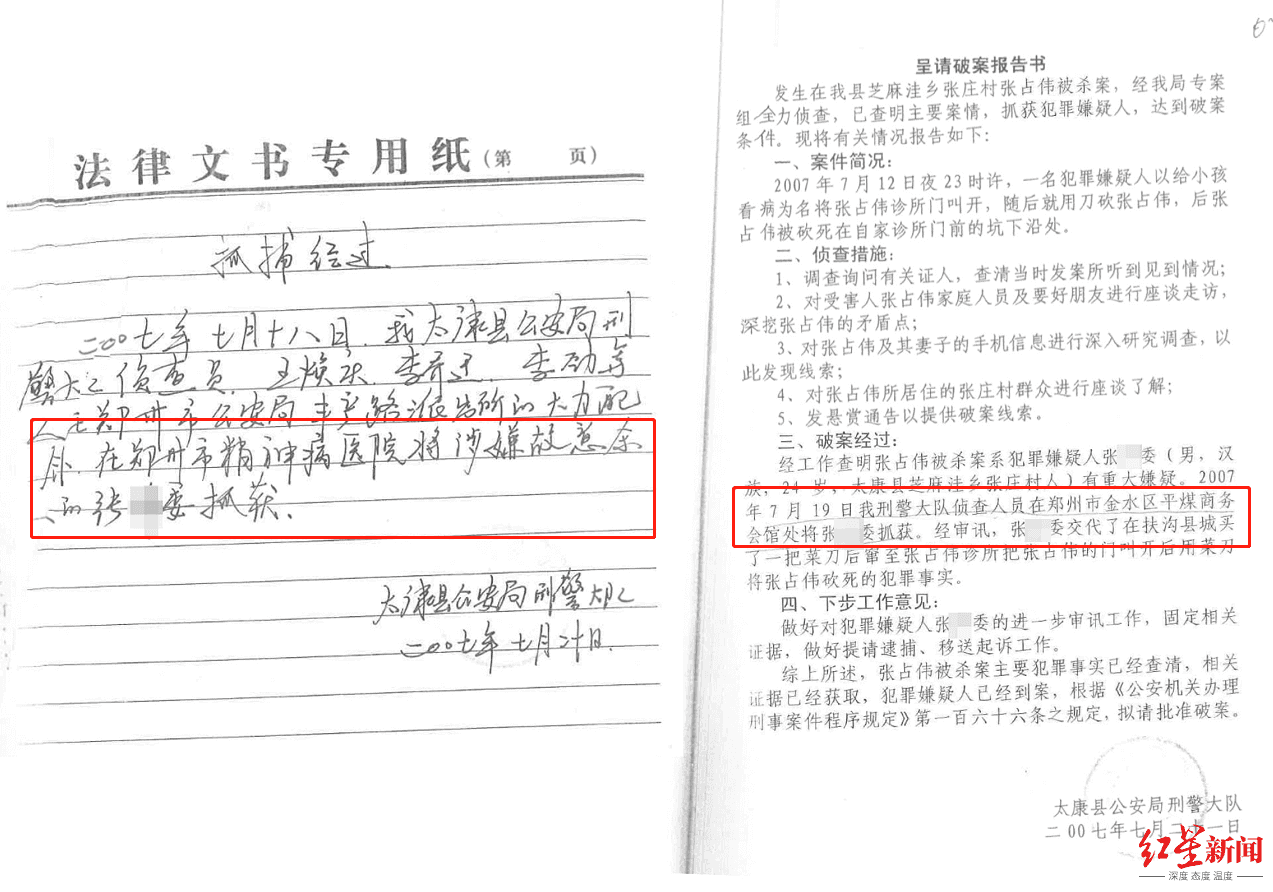 法律文书专用纸(第 页)
抓捕经过
二〇〇七年七月十八日,我太康县公安局刑
警大队侦查员
郑州市公安局丰产路派出所的大力配
在郑州市精神病医院将涉嫌故意杀
人的张 委抓获.
太康县公安局刑警大队
二〇〇七年七月
呈请破案报告书
发生在我县芝麻洼乡张庄村张占伟被杀案,经我局专案
组全力侦查,已查明主要案情,抓获犯罪嫌疑人,达到破案
条件。现将有关情况报告如下:
一、案件简况:
2007年7月12日夜23时许,一名犯罪嫌疑人以给小孩
看病为名将张占伟诊所门叫开,随后就用刀砍张占伟,后张
占伟被砍死在自家诊所门前的坑下沿处。
二、侦查措施:
1、调查询问有关证人,查清当时发案所听到见到情况;
2、对受害人张占伟家庭人员及要好朋友进行座谈走访,
深挖张占伟的矛盾点;
3、对张占伟及其妻子的手机信息进行深入研究调查,以
此发现线索;
4、对张占伟所居住的张庄村群众进行座谈了解;
5、发悬赏通告以提供破案线索。
三、破案经过:
经工作查明张占伟被杀案系犯罪嫌疑人张 委(男,汉
族,24岁,太康县芝麻洼乡张庄村人)有重大嫌疑。2007
年7月19日我刑警大队侦查人员在郑州市金水区平煤商务
会馆处将张 委抓获。经审讯,张 委交代了在扶沟县城买
了一把菜刀后窜至张占伟诊所把张占伟的门叫开后用菜刀
将张占伟砍死的犯罪事实。
四、下步工作意见:
做好对犯罪嫌疑人张 委的进一步审讯工作,固定相关
证据,做好提请逮捕、移送起诉工作。
综上所述,张占伟被杀案主要犯罪事实已经查清,相关
证据已经获取,犯罪嫌疑人已经到案,根据《公安机关办理
刑事案件程序规定》第一百六十六条之规定,拟请批准破案。
太康县公安局刑警大队
二00七年七月二十一日
红星新闻
深度 态度 温度